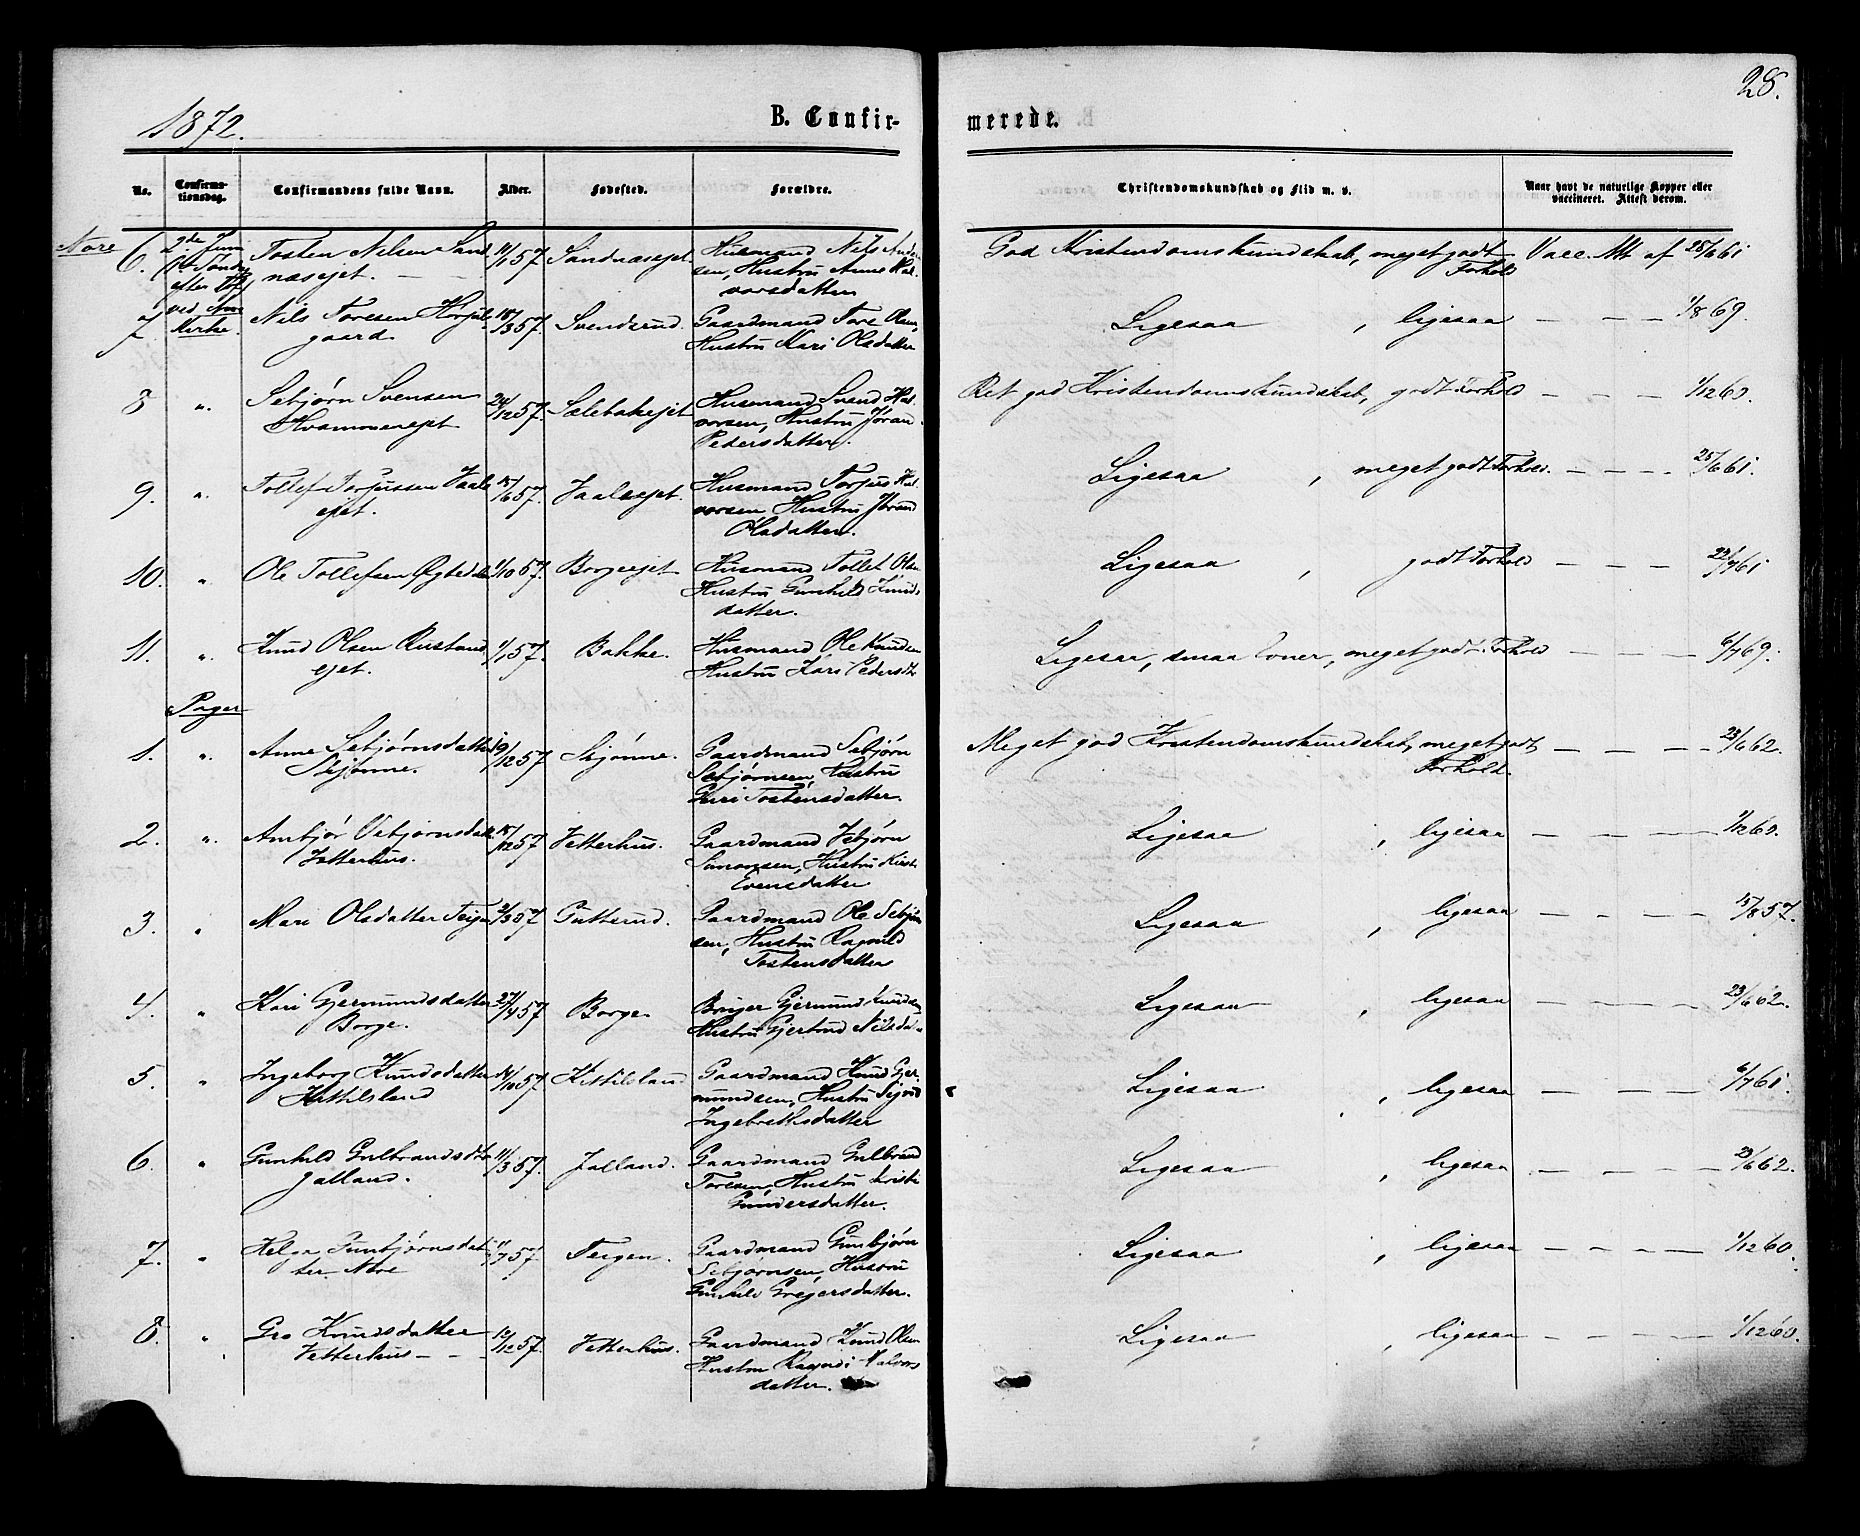 1872.
B. Confir-
merede.
28.
No.
Confirma-
tionsdag.
Confirmandens fulde Navn.
Alder.
Fødested.
Forældre.
Christendomskundskab og Flid m. v.
Naar havt de naturlige Kopper eller
vaccineret. Attest derom.
Nore
6.
2den Juni
Søndag
efter
ved Nore
Kirke
Tosten Nilsen Sand
næsejet.
11/1 57
Sandnæsejet.
Husmand Nils Ander
sen, Hustru Anne Hal
vorsdatter
God Kristendomskundskab, meget godt
Forhold
Vacc. Att af 25/6 61
7.
Nils Toresen Horjul
gaard
18/3 57.
Svendsrud.
Gaardmand Tore Olsen,
Hustru Kari Olsdatter
Ligesaa , ligesaa — — — 1/8 69.
8 "
Sebjørn Svensen
Hvammenejet
24/12 57.
Sælebakejet
Husmand Svend Hal
vorsen, Hustru Jøran
Pedersdatter.
Ret god Kristendomskundskab, godt Forhold — — — 1/12 60.
9. "
Tollef Torjussen Vaale
ejet.
15/6 57.
Vaaleejet.
Husmand Torjus Hal
vorsen, Hustru Jøran
Olsdatter.
Ligesaa , meget godt Forhold. — — — 25/6 61.
10. "
Ole Tollefsen Øygteda
1/10 57.
Borgeejet
Husmand Tollef Olsen
Hustru Gunhild Knuds
datter.
Ligesaa , godt Forhold — — — 22/7 61
11. "
Knud Olsen Rustand
ejet.
1/1 57.
Bakke.
Husmand Ole Knudsen
Hustru Kari Pedersdtr
Ligesaa, smaa Evner, meget godt Forhold — — — 6/7 69.
Piger
1. "
Anne Sebjørnsdatter
Skjønne.
19/12 57
Skjønne.
Gaardmand Sebjørn
Sebjørnsen, Hustru
Guri Tostensdatter.
Meget god Kristendomskundskab, meget godt
Forhold.
— — — 23/6 62.
2. "
Ambjør Vebjørnsdatt
Vetterhus.
15/12 57
Vetterhus.
Gaardmand Vebjørn
Simonsen, Hustru Kirsti
Evensdatter
Ligesaa , ligesaa — — — 1/12 60.
3. "
Mari Olsdatter Teigen
2/3 57
Gutterud.
Gaardmand Ole Sebjørn
sen, Hustru Ragnild
Tostensdatter
Ligesaa , ligesaa — — — 15/8 57.
4. "
Kari Gjermundsdatter
Borge.
27/4 57
Borge.
Bruger Gjermund Knudsen
Hustru Gjertrud Nilsda
Ligesaa , ligesaa — — — 23/6 62.
5. "
Ingeborg Knudsdatter
Kittilsland
14/10 57.
Kittilsland
Gaardmand Knud Gjer
mundsen, Hustru Sigrid
Ingebretsdatter
Ligesaa , ligesaa — — — 6/7 61.
6. "
Gunhild Gulbrandsdtr
Jalland.
11/3 57.
Jalland.
Gaardmand Gulbrand
Toresen, Hustru Kirsti
Gundersdatter.
Ligesaa , ligesaa — — — 23/6 62.
7. "
Helga Gunbjørnsdat
ter Nore
11/7 57.
Teigen.
Gaardmand Gunbjørn
Sebjørnsen, Hustru
Gunhild Gregersdatter.
Ligesaa , ligesaa — — — 1/12 60.
8. "
Gro Knudsdatter
Vetterhus — — —
12/12 57.
Vetterhus.
Gaardmand Knud Olsen
Hustru Ragndi Halvors
datter.
Ligesaa , ligesaa — — — 1/12 60.